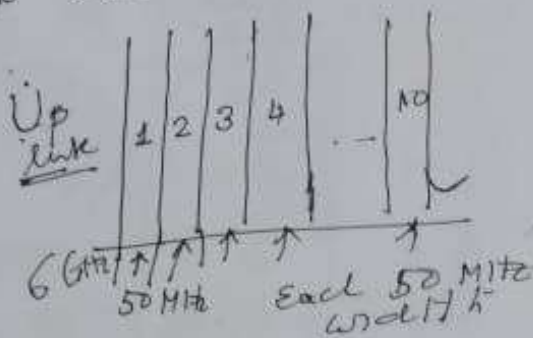 Up
link
1 2 3 4 ... 10
6 GHz
50 MHz
Each 50 MHz
width